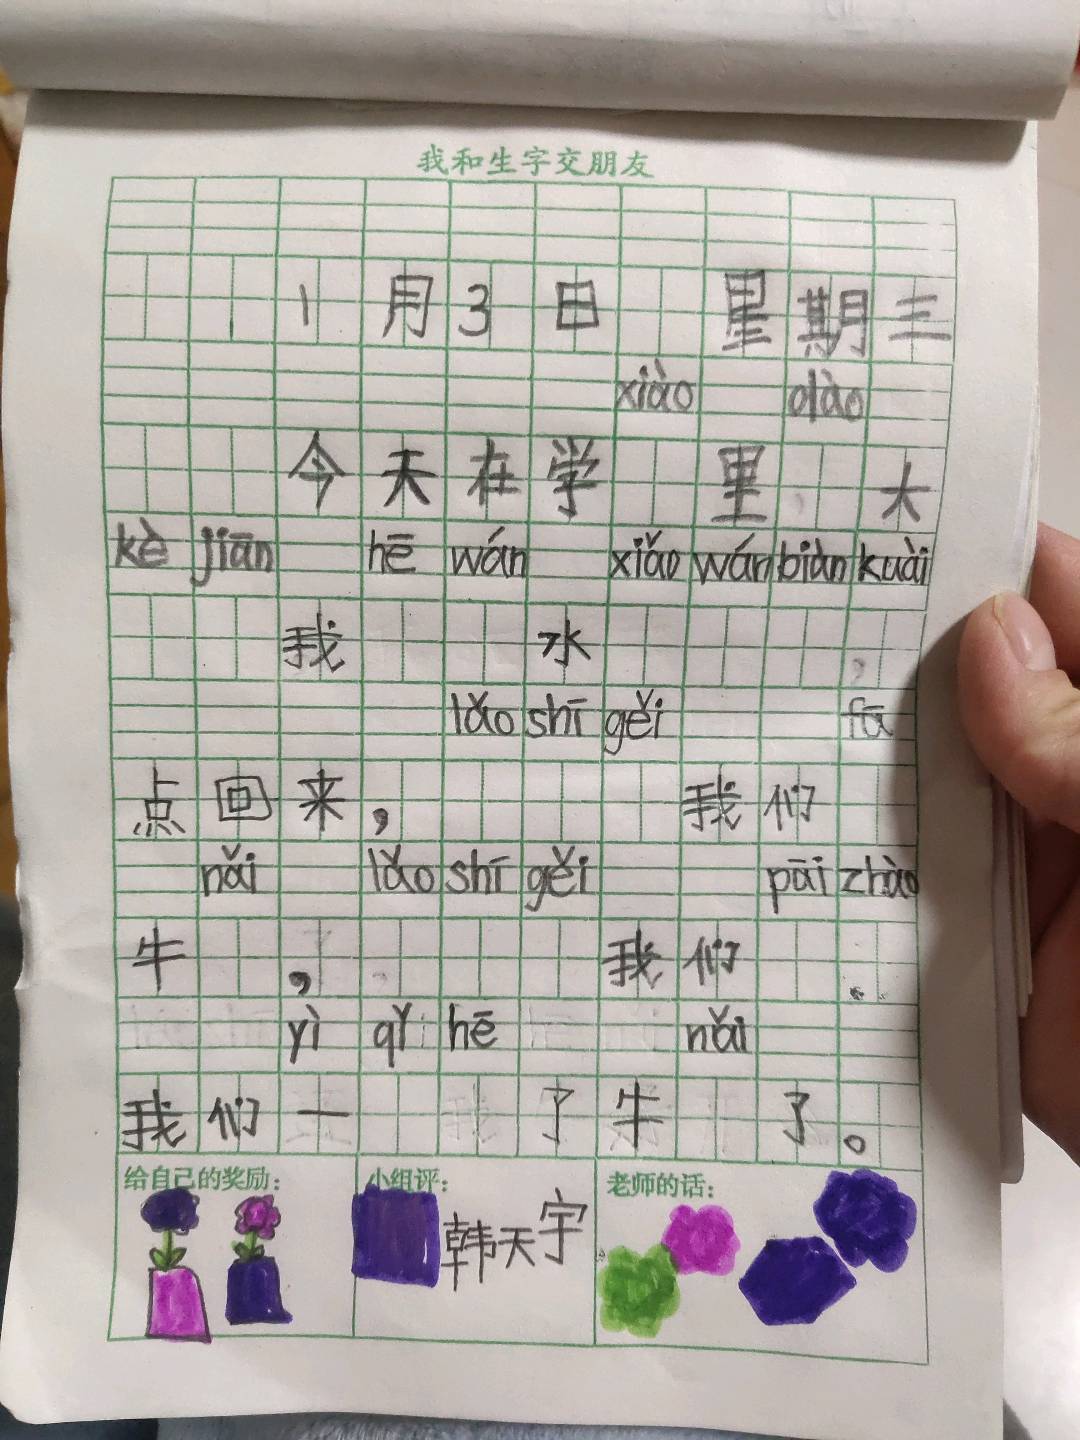 我和生字交朋友
1月3日 星期三
xiào dào
今天在学 里 大
kè jiān hē wán xiǎo wán biàn kuài
我 水 ,
lǎo shī gěi fā
点回来, 我们
nǎi lǎo shī gěi pāi zhào
牛 , 我们 .
yì qǐ hē nǎi
我们一 了牛 了。
给自己的奖励: 小组评: 老师的话:
韩天宇